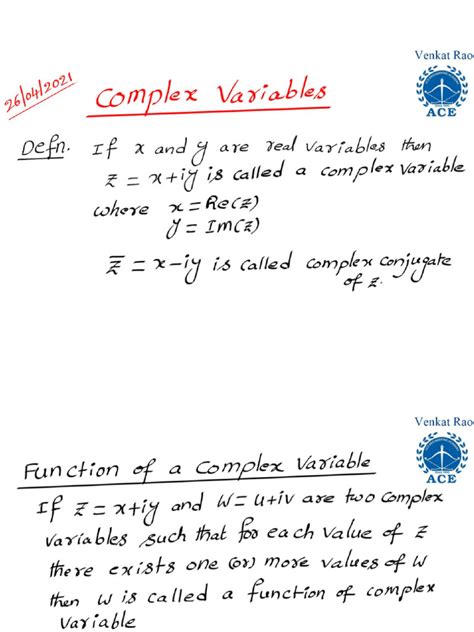 Venkat Rao
26/04/2021
Complex Variables
ACE
Defn. If x and y are real variables then
z = x+iy is called a complex variable
where x = Re(z)
y = Im(z)
z̅ = x-iy is called complex conjugate
of z.
Venkat Rao
Function of a Complex Variable
ACE
If z = x+iy and w = u+iv are two complex
variables such that for each value of z
there exists one (or) more values of w
then w is called a function of complex
variable